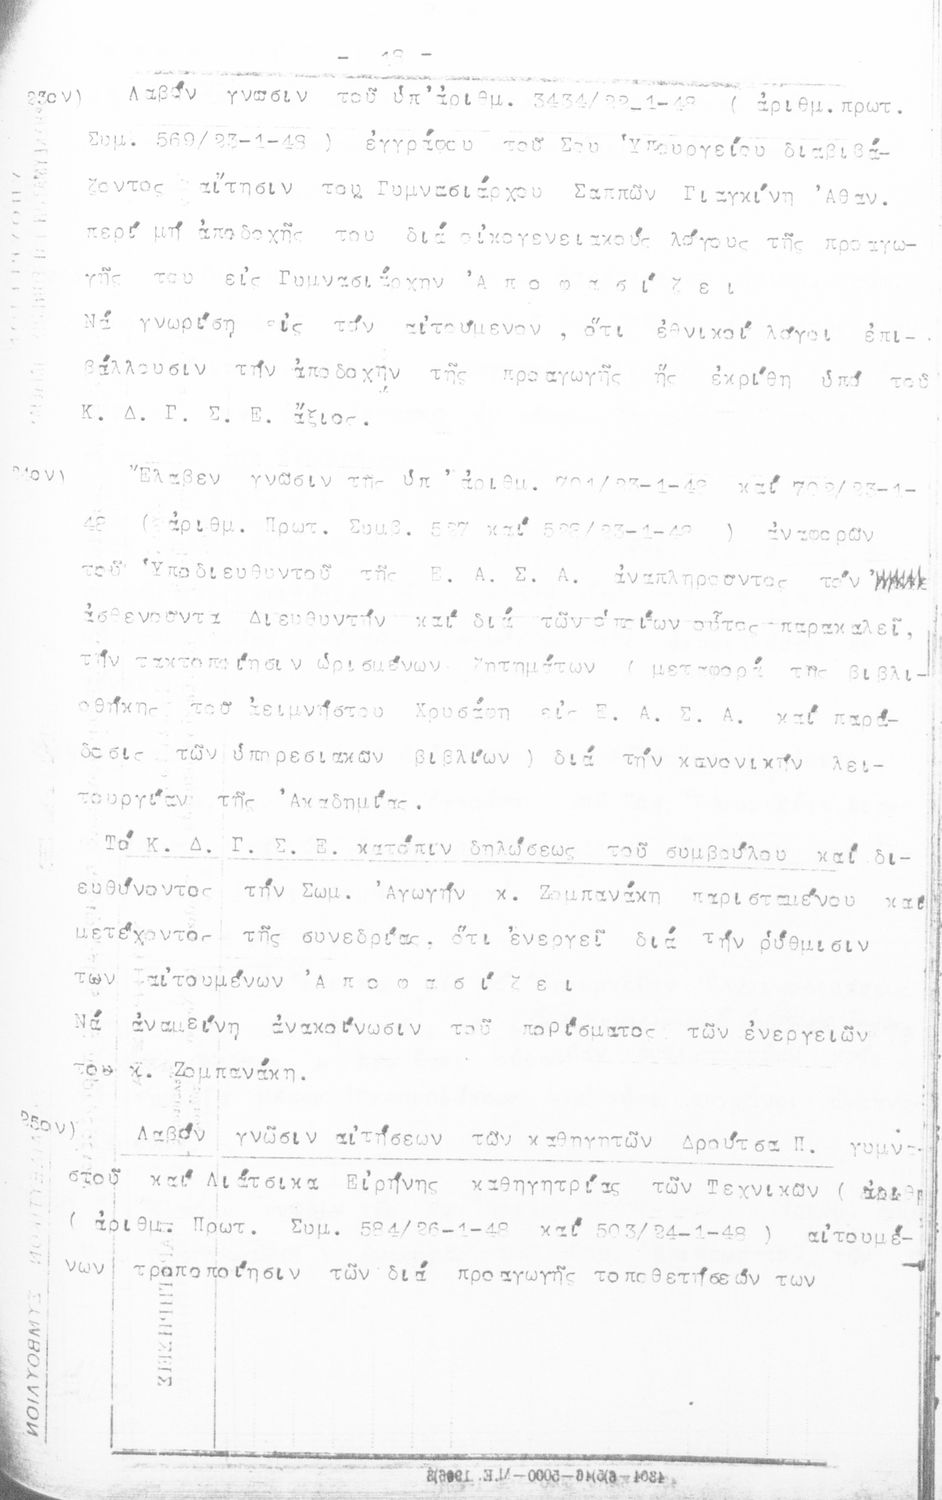 - 48 -
23ον) Λαβόν γνῶσιν τοῦ ὑπ' ἀριθμ. 3434/22_1-48 ( ἀριθμ.πρωτ.
Συμ. 569/23-1-48 ) ἐγγράφου τοῦ Σου Ὑπουργείου διαβιβά-
ζοντος αἴτησιν του Γυμνασιάρχου Σαππῶν Γιαγκίνη Ἀθαν.
περί μή ἀποδοχῆς του διά οἰκογενειακούς λόγους τῆς προαγω-
γῆς του εἰς Γυμνασιάρχην Ἀ π ο φ α σ ί ζ ε ι
Νά γνωρίση εἰς τόν αἰτούμενον , ὅτι ἐθνικοί λόγοι ἐπι-
βάλλουσιν τήν ἀποδοχήν τῆς προαγωγῆς ἧς ἐκρίθη ὑπό τοῦ
Κ. Δ. Γ. Σ. Ε. ἄξιος.
24ον) Ἔλαβεν γνῶσιν τῆς ὑπ' ἀριθμ. 701/23-1-48 καί 702/23-1-
48 ( ἀριθμ. Πρωτ. Συμβ. 527 καί 528/23-1-48 ) ἀναφορῶν
τοῦ Ὑποδιευθυντοῦ τῆς Ε. Α. Σ. Α. ἀναπληροῦντος τόν
ἀσθενοῦντα Διευθυντήν καί διά τῶν ὁποίων οὗτος παρακαλεῖ,
τήν τακτοποίησιν ὡρισμένων ζητημάτων ( μεταφορά τῆς βιβλι-
οθήκης τοῦ ἀειμνήστου Χρυσάφη εἰς Ε. Α. Σ. Α. καί παρά-
δοσις τῶν ὑπηρεσιακῶν βιβλίων ) διά τήν κανονικήν λει-
τουργίαν τῆς Ἀκαδημίας.
Τό Κ. Δ. Γ. Σ. Ε. κατόπιν δηλώσεως τοῦ συμβούλου καί δι-
ευθύνοντος τήν Σωμ. Ἀγωγήν κ. Ζομπανάκη παρισταμένου καί
μετέχοντος τῆς συνεδρίας, ὅτι ἐνεργεῖ διά τήν ρύθμισιν
των αἰτουμένων Ἀ π ο φ α σ ί ζ ε ι
Νά ἀναμείνη ἀνακοίνωσιν τοῦ πορίσματος τῶν ἐνεργειῶν
του κ. Ζομπανάκη.
25ον) Λαβόν γνῶσιν αἰτήσεων τῶν καθηγητῶν Δρούτσα Π. γυμνα-
στοῦ καί Λιάτσικα Εἰρήνης καθηγητρίας τῶν Τεχνικῶν (
( ἀριθμ. Πρωτ. Συμ. 584/26-1-48 καί 503/24-1-48 ) αἰτουμέ-
νων τροποποίησιν τῶν διά προαγωγῆς τοποθετήσεών των